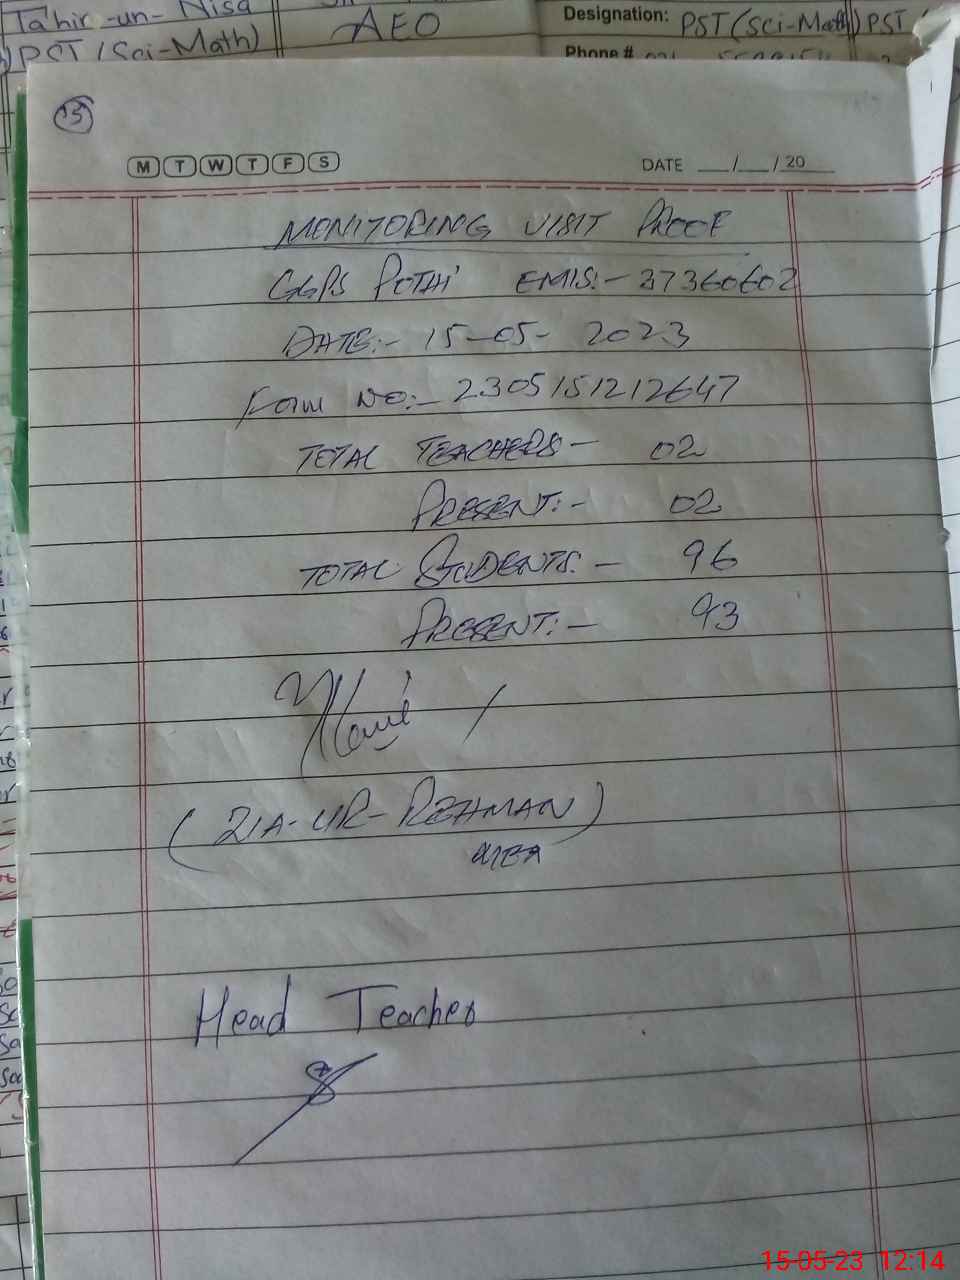 Tahir-un-Nisa
PST (Sci-Math)
AEO
Designation: PST (Sci-Math) PST
Phone #
13
M T W T F S
DATE __/__/20__
MONITORING VISIT PROOF
GGPS POTHI EMIS:- 37360602
DATE:- 15-05-2023
Form NO:- 2305151212647
TOTAL TEACHERS - 02
PRESENT:- 02
TOTAL STUDENTS:- 96
PRESENT:- 93
(ZIA-UR-REHMAN)
MEA
Head Teacher
15-05-23 12:14